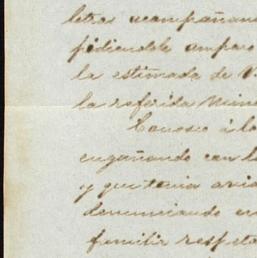 letras acompañan
pidiendole amparo
la estimada de V
la referida Mine
Conosco á lo
engañando con l
y que tenia avi
denunciando en
familia respeta